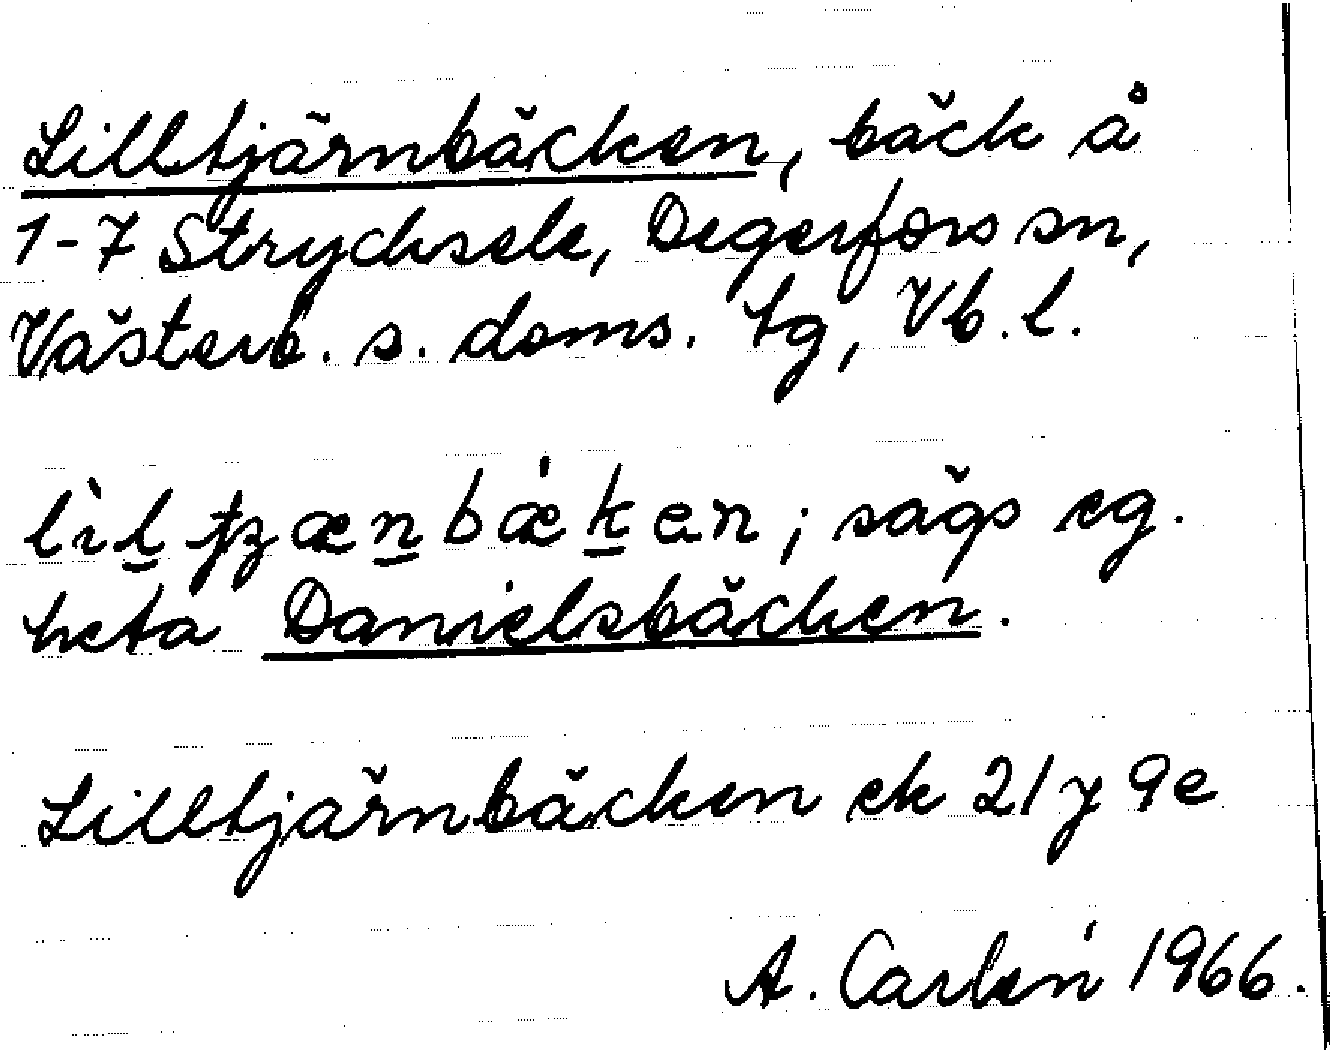 Lilltjärnbäcken, bäck å
1-7 Strycksele, Degerfors sn,
Västerb. s. doms. tg, Vb. l.
sägs eg.
heta Danielsbäcken.
Lilltjärnbäcken ek 21 y 9e
A. Carlén 1966.